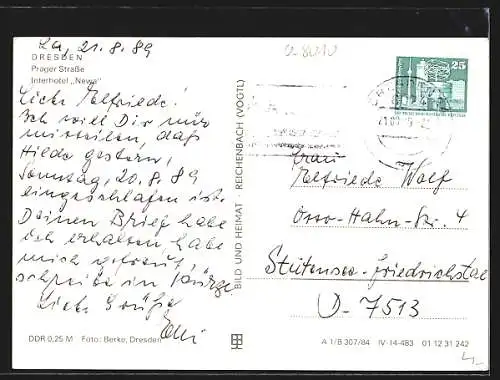 La, 21.8.89
DRESDEN
Prager Straße
Interhotel „Newa"
Liebe Elfriede!
Ich will Dir nur
mitteilen, daß
Hilde gestern,
Sonntag, 20.8.89
eingeschlafen ist.
Deinen Brief habe
ich erhalten, habe
mich gefreut,
schreibe in Kürze
Liebe Grüße
Elli
DDR 0,25 M Foto: Berke, Dresden
BILD UND HEIMAT · REICHENBACH (VOGTL)
25
Frau
Elfriede Wolf
Otto-Hahn-Str. 4
Stutensee-Friedrichstal
D-7513
A 1/B 307/84 IV-14-483 01 12 31 242